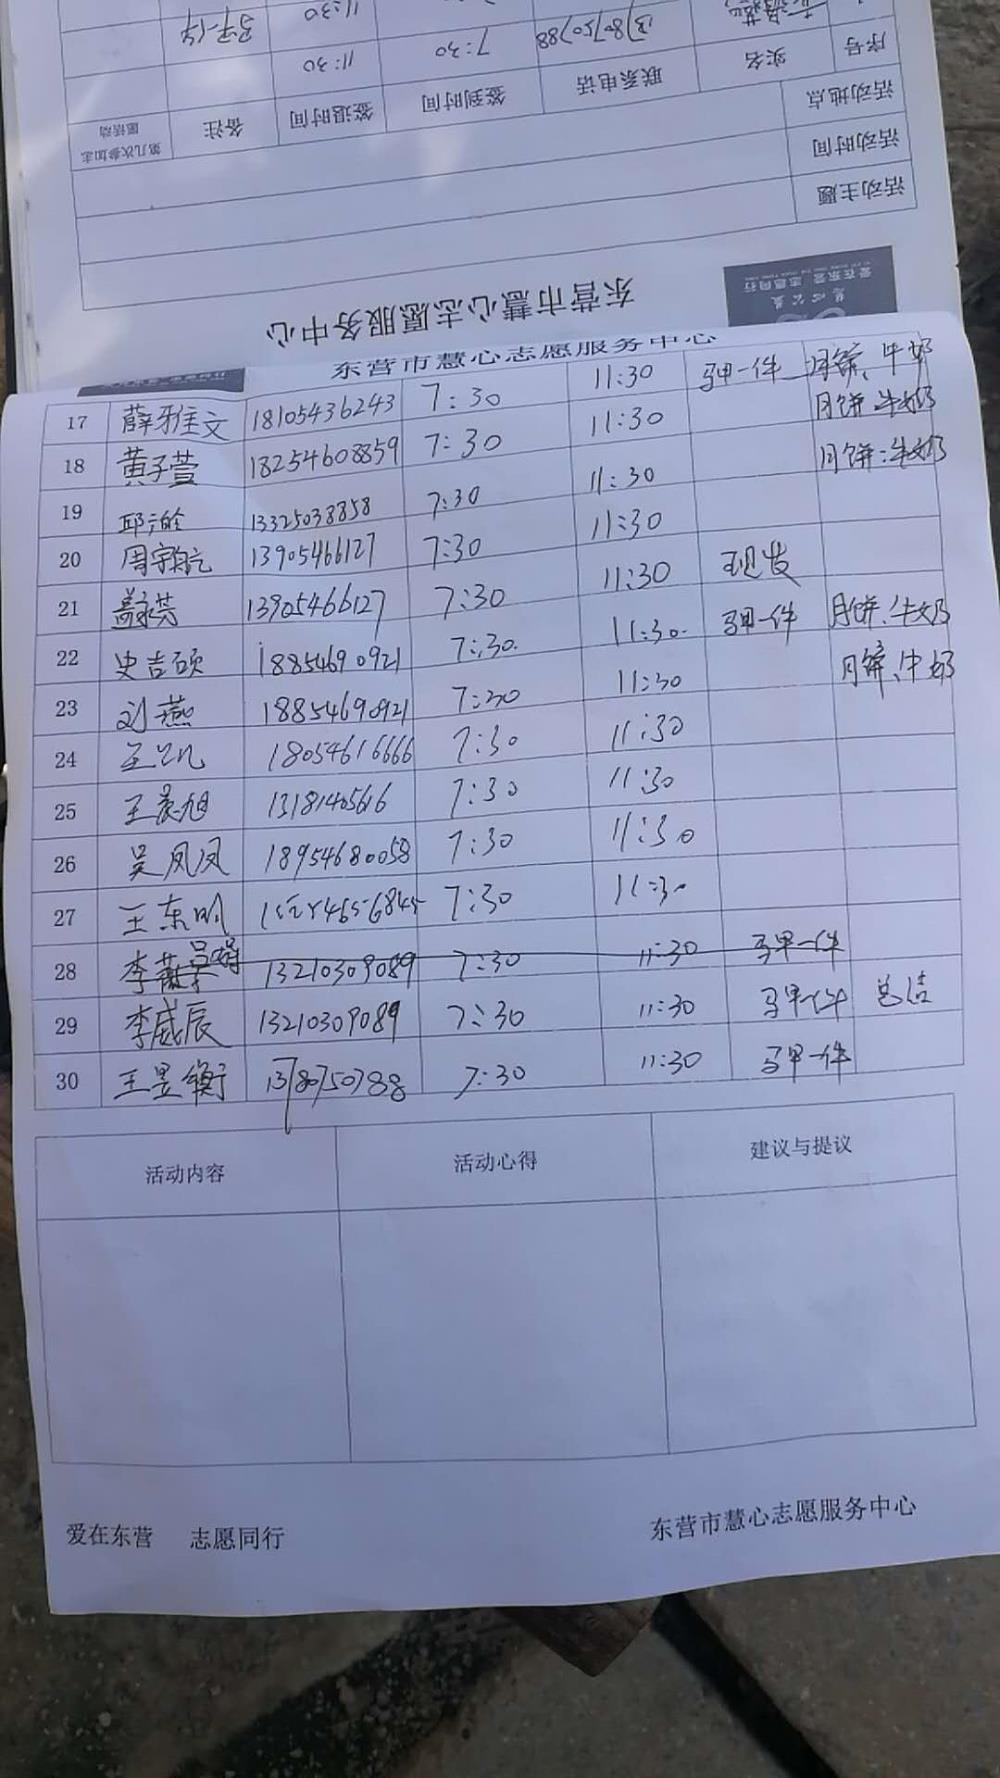 11:30
马甲一件
13780750788
7:30
11:30
序号 实名 联系电话 签到时间 签退时间 备注 第几次参加志愿活动
活动地点
活动时间
活动主题
东营市慧心志愿服务中心
慧心公益
爱在东营 志愿同行
东营市慧心志愿服务中心
17 薛雅文 18105436243 7:30 11:30 马甲一件 月饼、牛奶
18 黄子萱 18254608859 7:30 11:30 月饼 牛奶
19 13325038858 7:30 11:30 月饼:牛奶
20 周宇航 13905466127 7:30 11:30
21 13905466127 7:30 11:30
22 史吉硕 18854690921 7:30 11:30 马甲一件 月饼、牛奶
23 刘燕 18854690921 7:30 11:30 月饼、牛奶
24 18054616666 7:30 11:30
25 王晨旭 13181405616 7:30 11:30
26 吴凤凤 18954680058 7:30 11:30
27 王东明 7:30 11:30
28 李 13210309089 7:30 11:30 马甲一件
29 李威辰 13210309089 7:30 11:30 马甲一件 总结
30 王昱衡 13780750788 7:30 11:30 马甲一件
活动内容 活动心得 建议与提议
爱在东营 志愿同行 东营市慧心志愿服务中心